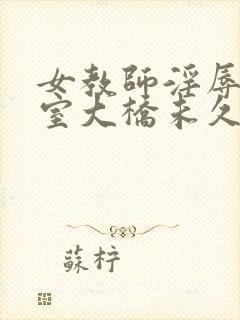 女教師淫辱
室大橋未久
蘇柠